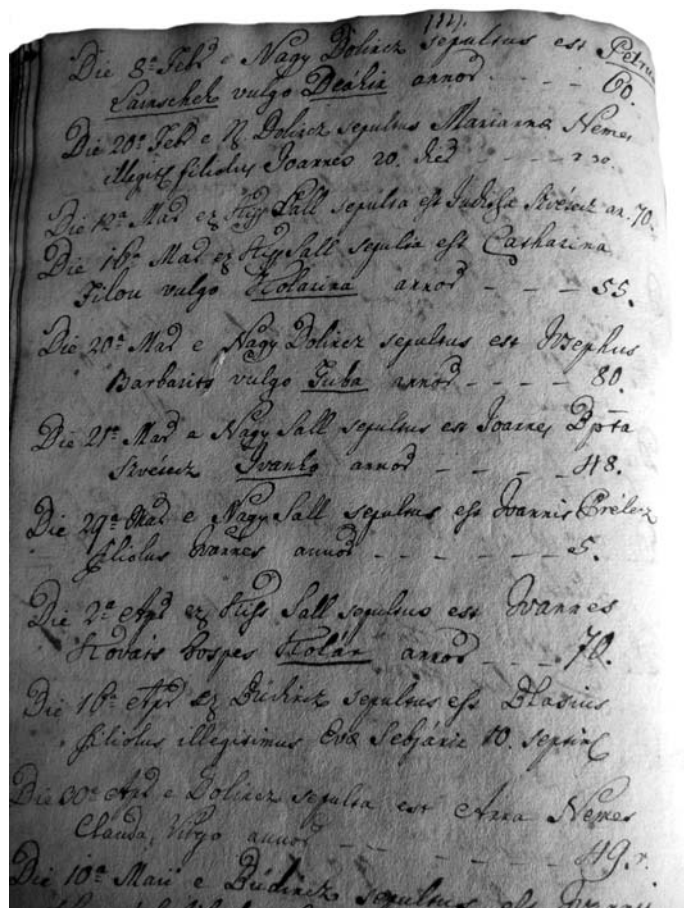 Die 8ª Febr e Nagy Dolincz sepultus est Petrus
vulgo Deákin annor - - - 60.
Die 20ª Febr e N. Dolincz sepultus Marianna Nemes
illegit filiolus Joannes 20.
Die 12ª Mar ex Kiss Sall sepulta est an. 70.
Die 16ª Mar ex Kiss Sall sepulta est Catharina
Filou vulgo Kolarina annor - - - 55.
Die 20ª Mar e Nagy Dolincz sepultus est Josephus
Barbarits vulgo Juba annor - - - - 80.
Die 21ª Mar e Nagy Sall sepultus est Joannes Bpta
Ivanko annor - - - - 48.
Die 29ª Mar e Nagy Sall sepultus est Joannis
filiolus Joannes annor - - - - - - 5.
Die 2ª Apr ex Kiss Sall sepultus est Joannes
Kovats hospes Kolár annor - - - 70.
Die 16ª Apr ex Büdincz sepultus est Blasius
filiolus illegitimus Evæ 10. septim
Die 30ª Apr e Dolincz sepulta est Anna Nemes
Clauda, Virgo annor - - - - - - 49.
Die 10ª Maii e Büdincz sepultus est Joannis